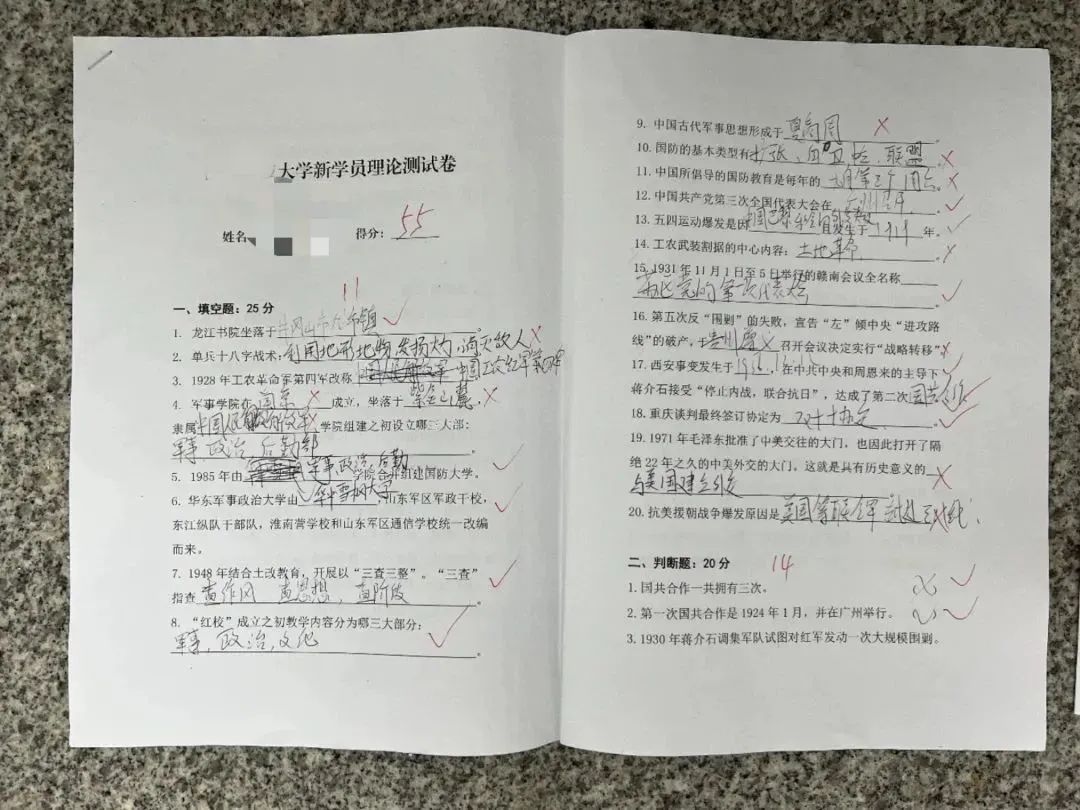 大学新学员理论测试卷
姓名 得分：55
11
一、填空题：25分
1. 龙江书院坐落于井冈山市龙市镇。
2. 单兵十八字战术：利用地形地物 发扬火力 消灭敌人
3. 1928年工农革命军第四军改称 中国工农红军第四军
4. 军事学院在南京成立，坐落于紫金山麓，
隶属中国人民解放军学院组建之初设立哪三大部：
军事 政治 后勤部
5. 1985年由军事、政治、后勤学院合并组建国防大学。
6. 华东军事政治大学由华中雪枫大学山东军区军政干校，
东江纵队干部队，淮南营学校和山东军区通信学校统一改编
而来。
7. 1948年结合土改教育，开展以“三查三整”。“三查”
指查 查作风 查思想，查阶级。
8. “红校”成立之初教学内容分为哪三大部分：
军事，政治，文化。
9. 中国古代军事思想形成于夏商周。
10. 国防的基本类型有扩张、自卫、联盟。
11. 中国所倡导的国防教育是每年的 九月第三个周六。
12. 中国共产党第三次全国代表大会在广州召开。
13. 五四运动爆发是因中国巴黎和会外交失败且发生于1919年。
14. 工农武装割据的中心内容：土地革命。
15. 1931年11月1日至5日举行的赣南会议全名称
苏区党的第一次代表大会。
16. 第五次反“围剿”的失败，宣告“左”倾中央“进攻路
线”的破产，于贵州遵义召开会议决定实行“战略转移”。
17. 西安事变发生于，在中共中央和周恩来的主导下
蒋介石接受“停止内战，联合抗日”，达成了第二次国共合作。
18. 重庆谈判最终签订协定为双十协定。
19. 1971年毛泽东批准了中美交往的大门，也因此打开了隔
绝22年之久的中美外交的大门。这就是具有历史意义的
与美国建立外交。
20. 抗美援朝战争爆发原因是美国
二、判断题：20分 14
1. 国共合作一共拥有三次。
2. 第一次国共合作是1924年1月，并在广州举行。
3. 1930年蒋介石调集军队试图对红军发动一次大规模围剿。